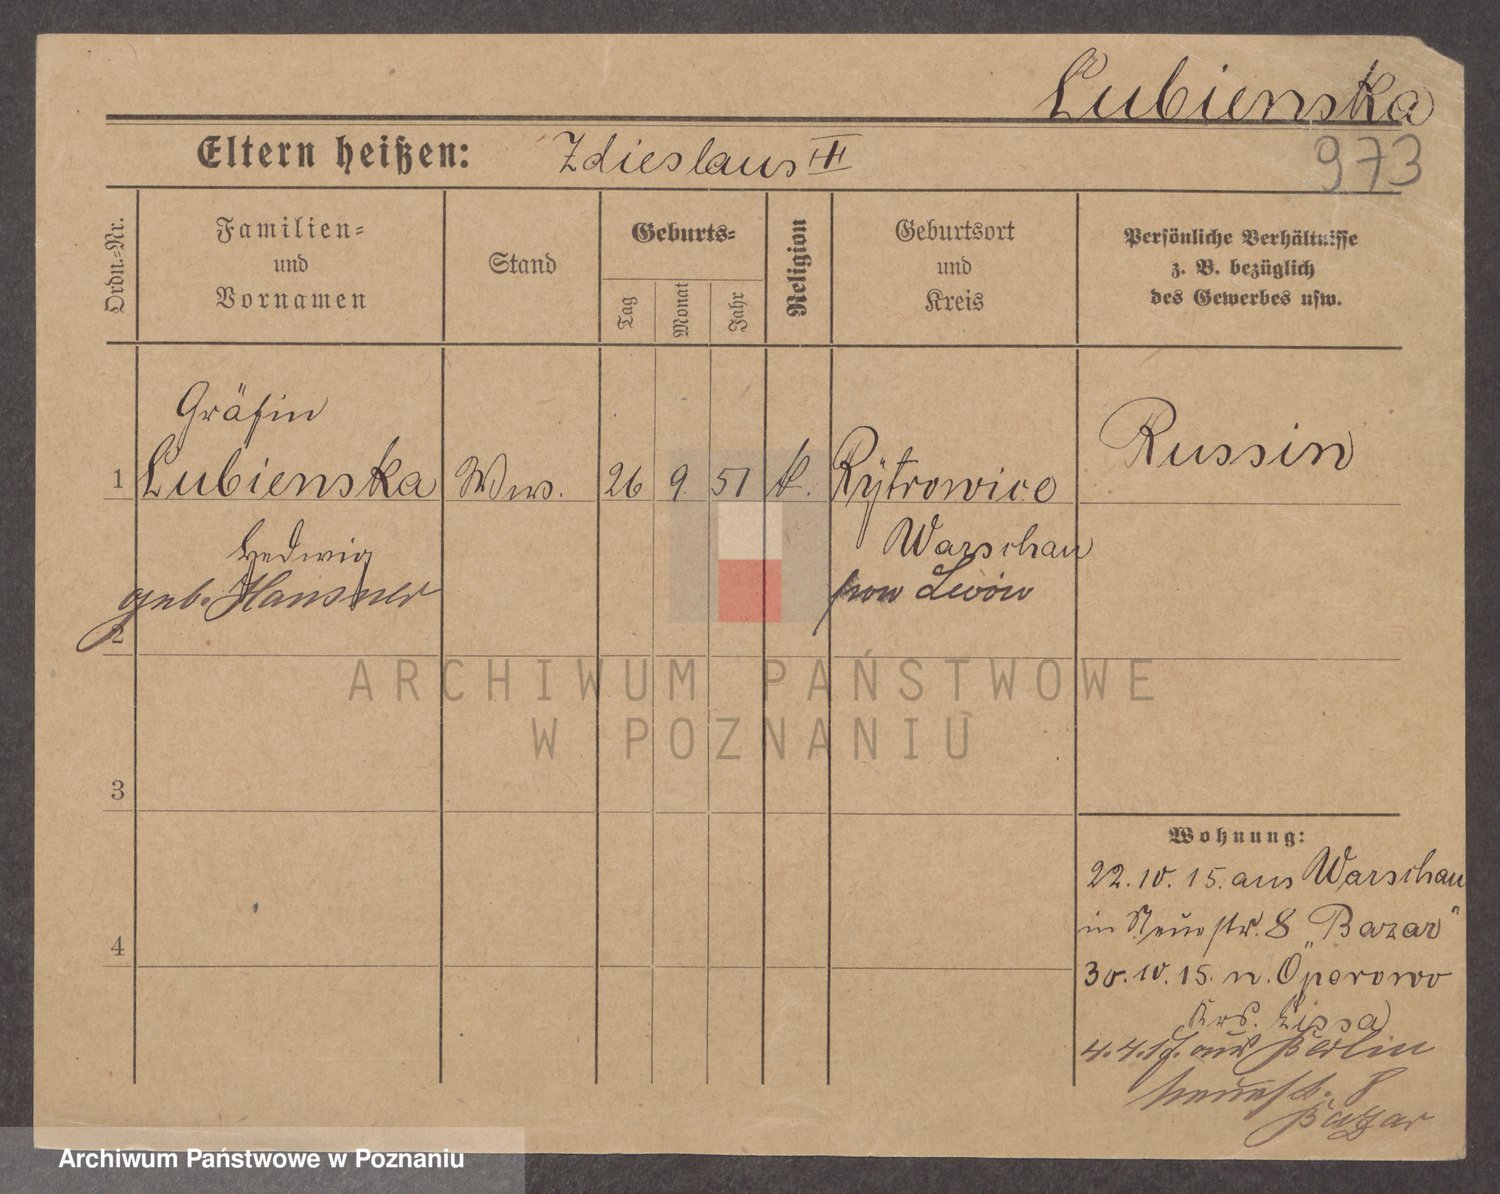 Lubienska
Eltern heißen: Zdieslaus III
973
Ordn.-Nr.
Familien-
und
Vornamen
Stand
Geburts-
Tag
Monat
Jahr
Religion
Geburtsort
und
Kreis
Persönliche Verhältnisse
z. B. bezüglich
des Gewerbes usw.
Gräfin
1 Lubienska Wws. 26 9 51 k. Rytrowice
Russin
Hedwig
Warschau
geb. Hausner
Lwów
2
ARCHIWUM PAŃSTWOWE
W POZNANIU
3
Wohnung:
22.10.15. aus Warschau
in Neuestr. 8 „Bazar"
4
30.10.15. n. Oporowo
Krs. Lissa
4.4.17. aus Berlin
Neuestr. 8
Bazar
Archiwum Państwowe w Poznaniu